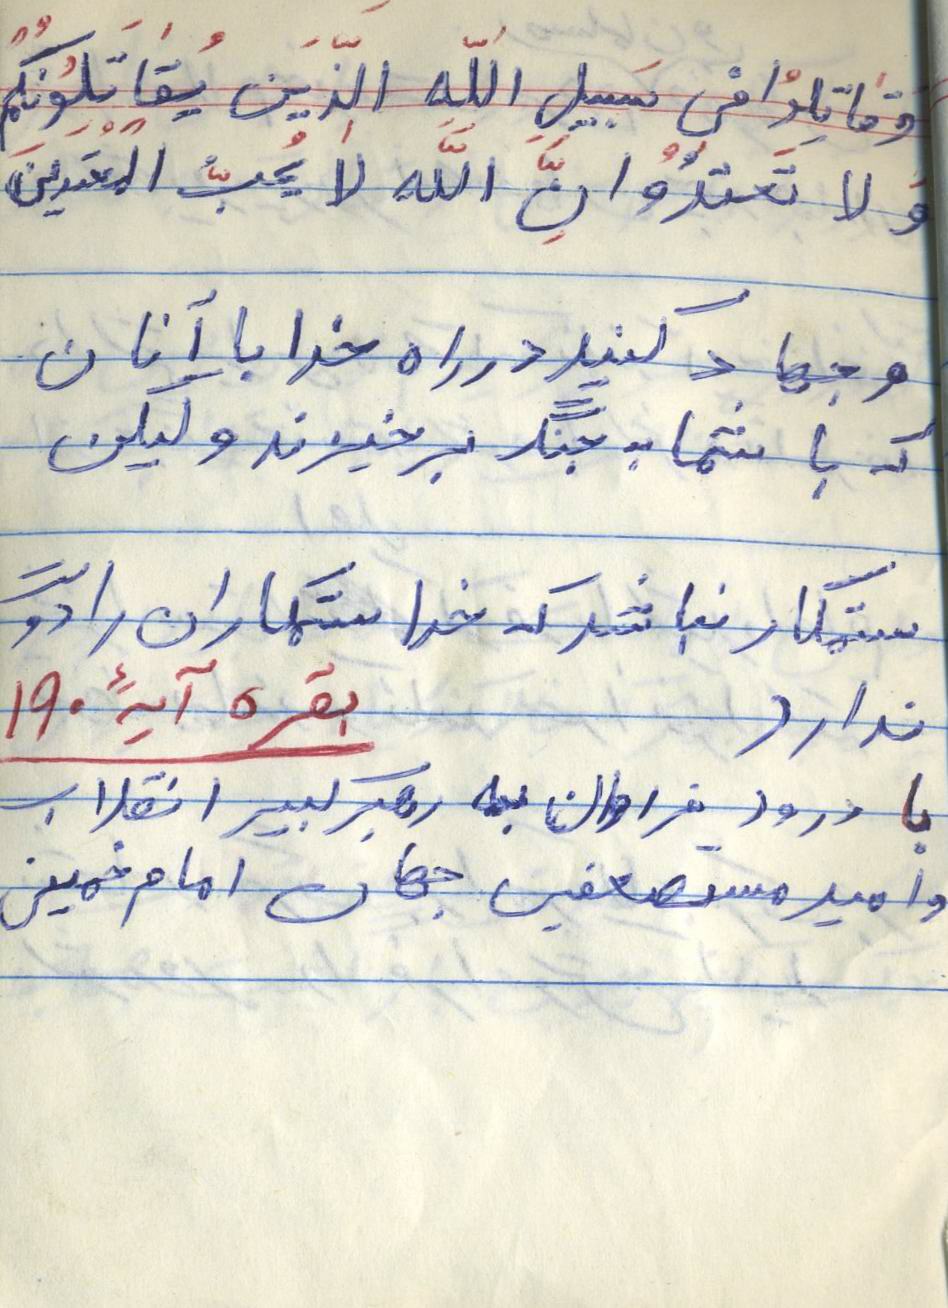 وَقَاتِلُوْا فی سَبیلِ اللّهِ الَّذیَن یُقَاتَلُونَکُمْ
وَلا تَعْتَدُوُا اِنَّ اللَّه لاٰ یُحِبّ المُعْتَدینَ
و جهاد کنید در راه خدا با آنان
که با شما به جنگ برخیزند و لیکن
ستمکار نباشد که خدا ستمکاران را دوست
ندارد
بقره آیهٔ ۱۹۰
با درود فراوان به رهبر کبیر انقلاب
و امید مستضعفین جهان امام خمینی